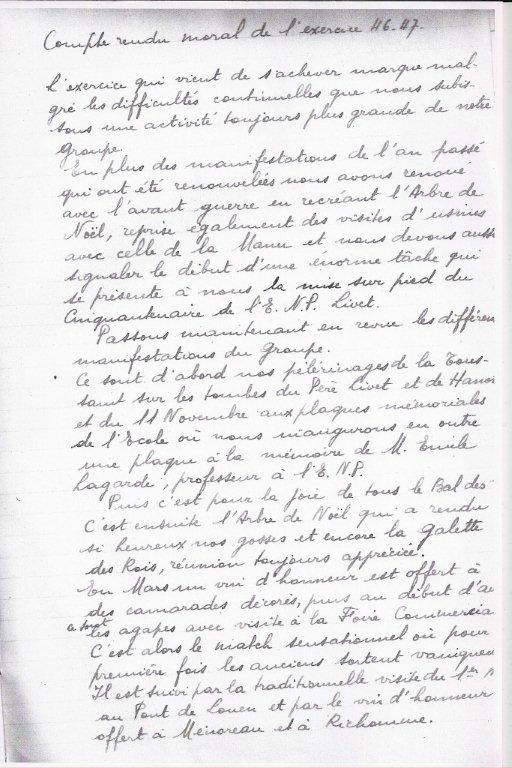 Compte rendu moral de l'exercice 46-47.
L'exercice qui vient de s'achever marque mal-
gré les difficultés continuelles que nous subis-
sons une activité toujours plus grande de notre
groupe.
En plus des manifestations de l'an passé
qui ont été renouvelées nous avons renoué
avec l'avant guerre en recréant l'Arbre de
Noël, reprise également des visites d'usines
avec celle de la Manu et nous devons auss
signaler le début d'une énorme tâche qui
se présente à nous la mise sur pied du
Cinquantenaire de l'E.N.P. Livet.
Passons maintenant en revue les différen
manifestations du Groupe.
Ce sont d'abord nos pélerinages de la Tous-
saint sur les tombes du Père Livet et de
et du 11 Novembre aux plaques mémoriales
de l'Ecole où nous inaugurons en outre
une plaque à la mémoire de M. Emile
Lagarde, professeur à l'E.N.P.
Puis c'est pour la joie de tous le Bal des
C'est ensuite l'Arbre de Noël qui a rendu
si heureux nos gosses et encore la galette
des Rois, réunion toujours appréciée.
En Mars un vin d'honneur est offert à
des camarades décorés, puis au début d'a
les agapes avec visite à la Foire Commercia
C'est alors le match sensationnel où pour
première fois les anciens sortent vainqueu
Il est suivi par la traditionnelle visite du 1er
au Pont de Louen et par le vin d'honneur
offert à Ménoreau et à Richomme.